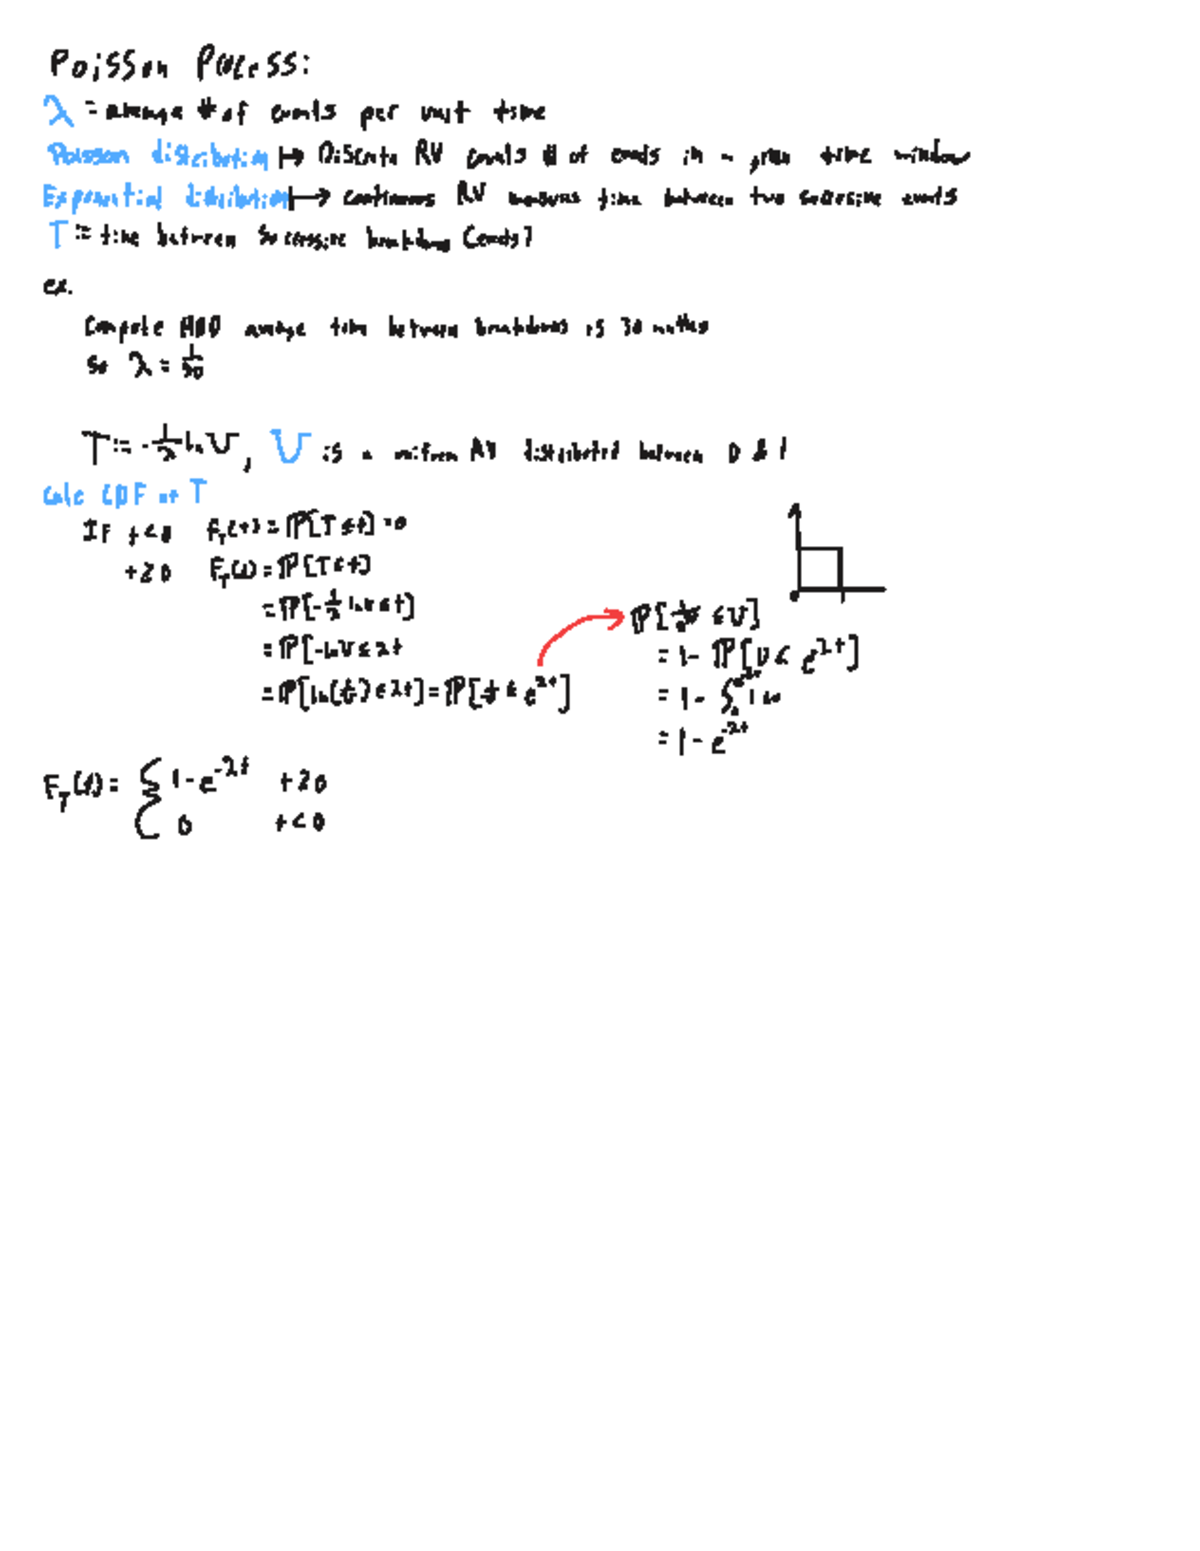 Poisson Process:
λ = average # of events per unit time
Poisson distribution ↦ Discrete RV counts # of events in a given time window
Exponential distribution ↦ continuous RV measures time between two successive events
T := time between successive breakdowns (events)
ex.
Compute average time between breakdowns is 30 months
so λ = 1/30
T := -1/λ ln U, U is a uniform RV distributed between 0 & 1
Calc CDF of T
IF t<0 F_T(t) = P[T ≤ t] = 0
t≥0 F_T(t) = P[T ≤ t]
= P[-1/λ ln U ≤ t]
= P[-ln U ≤ λt
= P[ln(1/U) ≤ λt] = P[1/U ≤ e^λt]
≤ U]
= 1 - P[U ≤ e^λt]
= 1 - ∫
= 1 - e^-λt
F_T(t) = { 1 - e^-λt t≥0
0 t<0